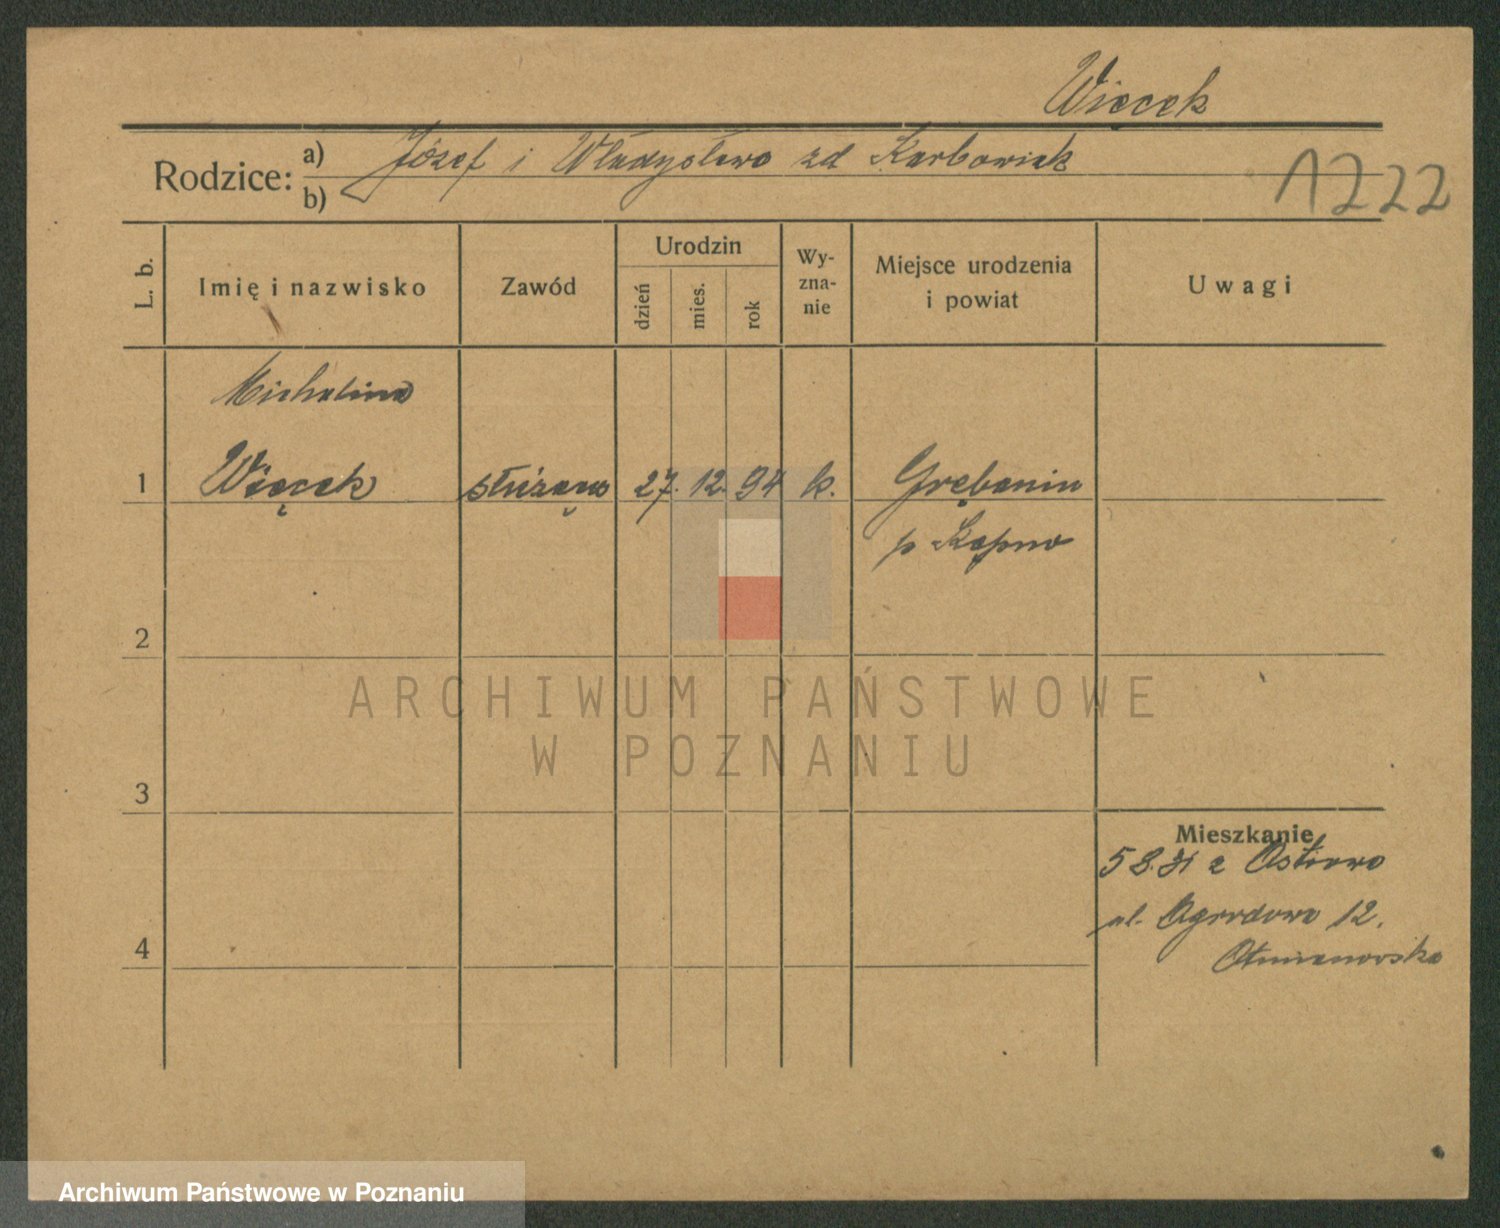 Więcek
Rodzice: a) Józef i Władysława zd Karbowiak
b)
1222
L. b.
Imię i nazwisko
Zawód
Urodzin
dzień
mies.
rok
Wy-
zna-
nie
Miejsce urodzenia
i powiat
Uwagi
Michalina
1 Więcek służąca 27. 12. 94 k. Grębanin
p Kępno
2
ARCHIWUM PAŃSTWOWE
W POZNANIU
3
Mieszkanie
5 8. 31 z
ul. Ogrodowa 12.
4
Archiwum Państwowe w Poznaniu